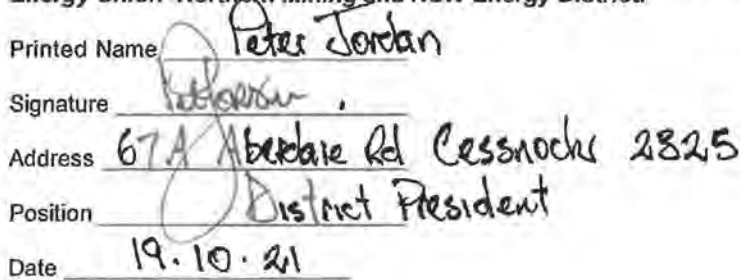 Energy Union Northern Mining and NSW Energy District
Printed Name Peter Jordan
Signature
Address 67A Aberdare Rd Cessnock 2325
Position District President
Date 19.10.21